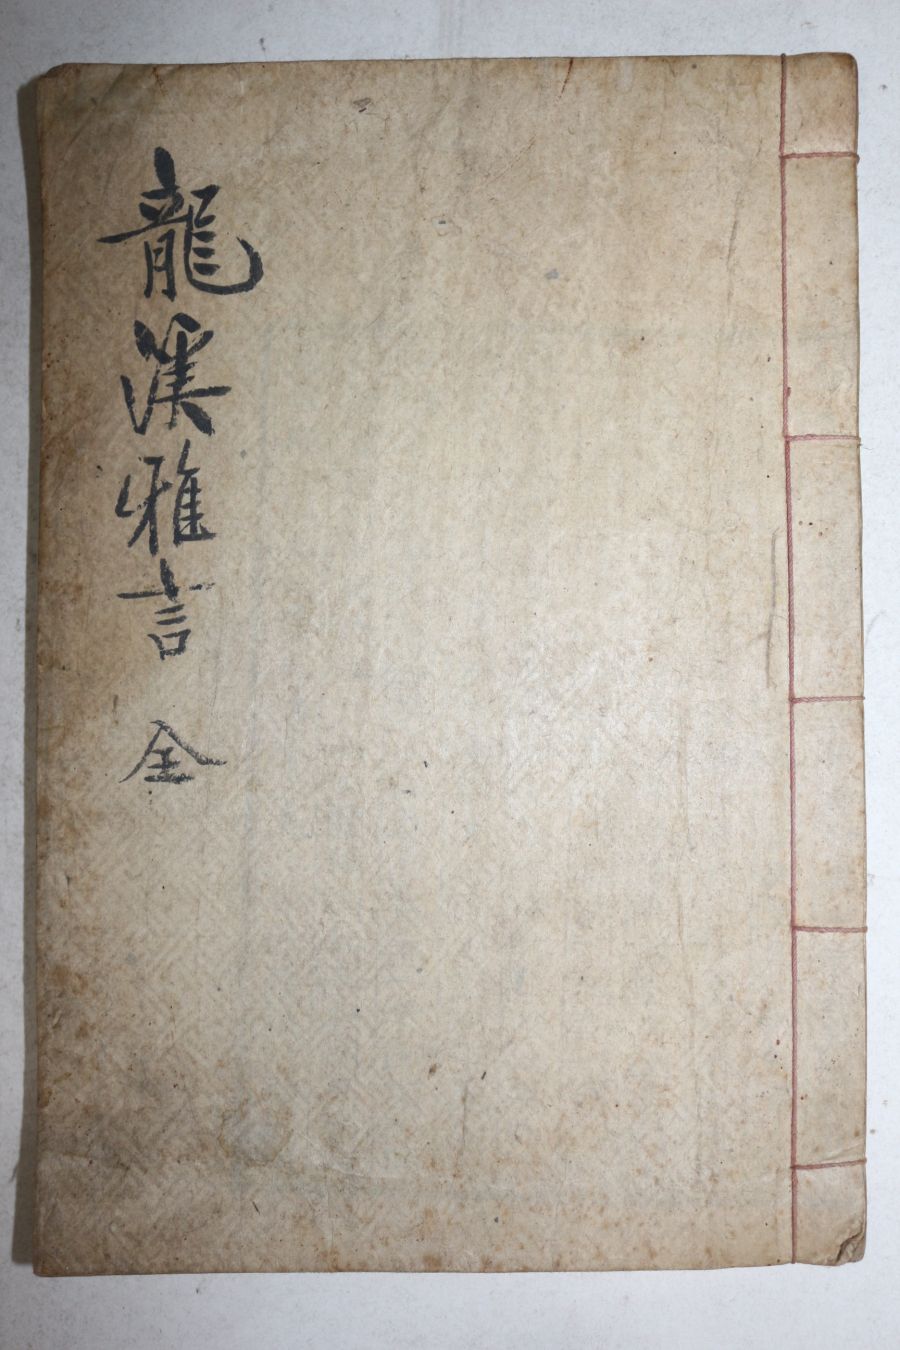 龍溪雅言 全